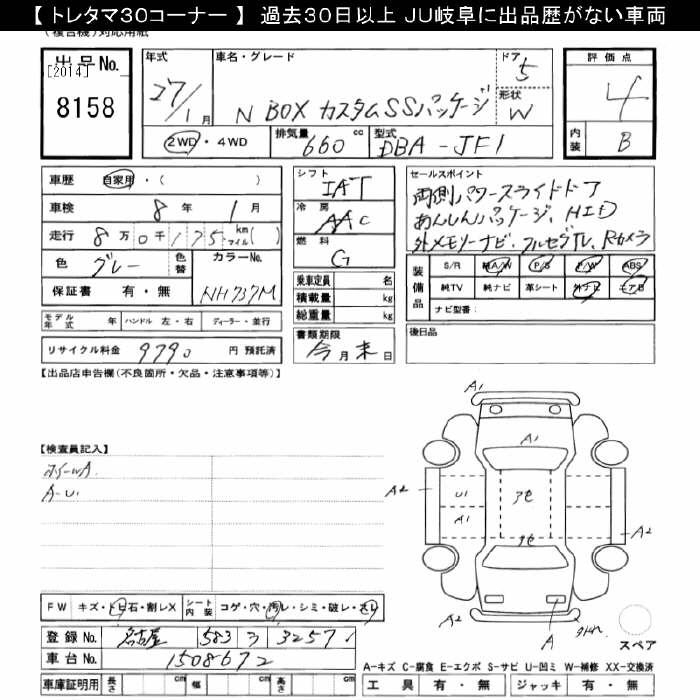 【 トレタマ30コーナー 】 過去30日以上 JU岐阜に出品歴がない車両
(複合機)対応用紙
出品No.
[2014]
8158
年式
27/1月
車名・グレード
N BOX カスタムSSパッケージ
ドア
5
形状
W
2WD・4WD
排気量
660 cc
型式
DBA-JF1
評価点
4
内装
B
車歴 自家用・( )
車検 8年 1月
走行 8万0千175 km マイル( )
色 グレー 色替 カラーNo.
保証書 有・無 NH737M
モデル年式 年 ハンドル 左・右 ディーラー・並行
リサイクル料金 9790 円 預託済
シフト
IAT
冷房
AAC
燃料
G
乗車定員 名
積載量 kg
総重量 kg
書類期限
今月末日
セールスポイント
両側パワースライドドア
あんしんパッケージ、HID
外メモリーナビ、フルセグTV、Rカメラ
装備品
S/R A/W P/S P/W ABS
純TV 純ナビ 革シート 外ナビ エアB
ナビ型番:
後日品
【出品店申告欄(不良箇所・欠品・注意事項等)】
【検査員記入】
ホイールA
A-U1
A1
A1
A2
U1
A1
A2
A2
A
スペア
FW キズ・トビ石・割レX シート内装 コゲ・穴・汚レ・シミ・破レ・スレ
登録No. 名古屋 583
車台No. 1508672
車庫証明用 長さ cm 幅 cm 高さ cm
A-キズ C-腐食 E-エクボ S-サビ U-凹ミ W-補修 XX-交換済
工具 有・無 ジャッキ 有・無